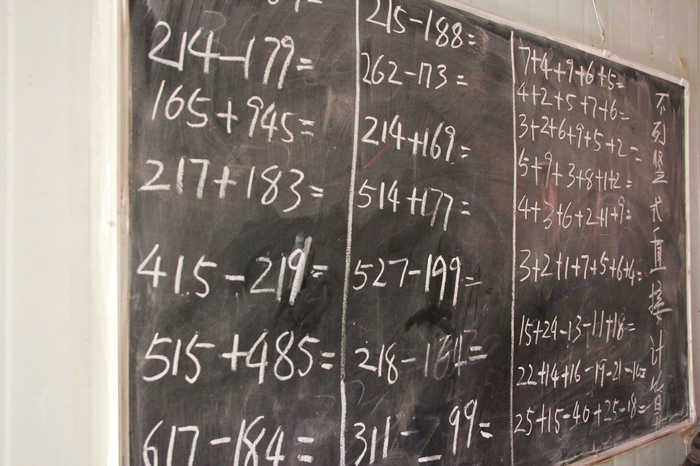 214-179=
165+945=
217+183=
415-219=
515+485=
617-184=
215-188=
262-173=
214+169=
514+177=
527-199=
218-164=
311-_99=
7+4+9+6+5=
4+2+5+7+6=
3+2+6+9+5+2=
5+9+3+8+1+2=
4+3+6+2+1+9=
3+2+1+7+5+6+4=
15+24-13-11+18=
22+14+16-19-21-16=
25+15-40+25-18=
不列竖式直接计算